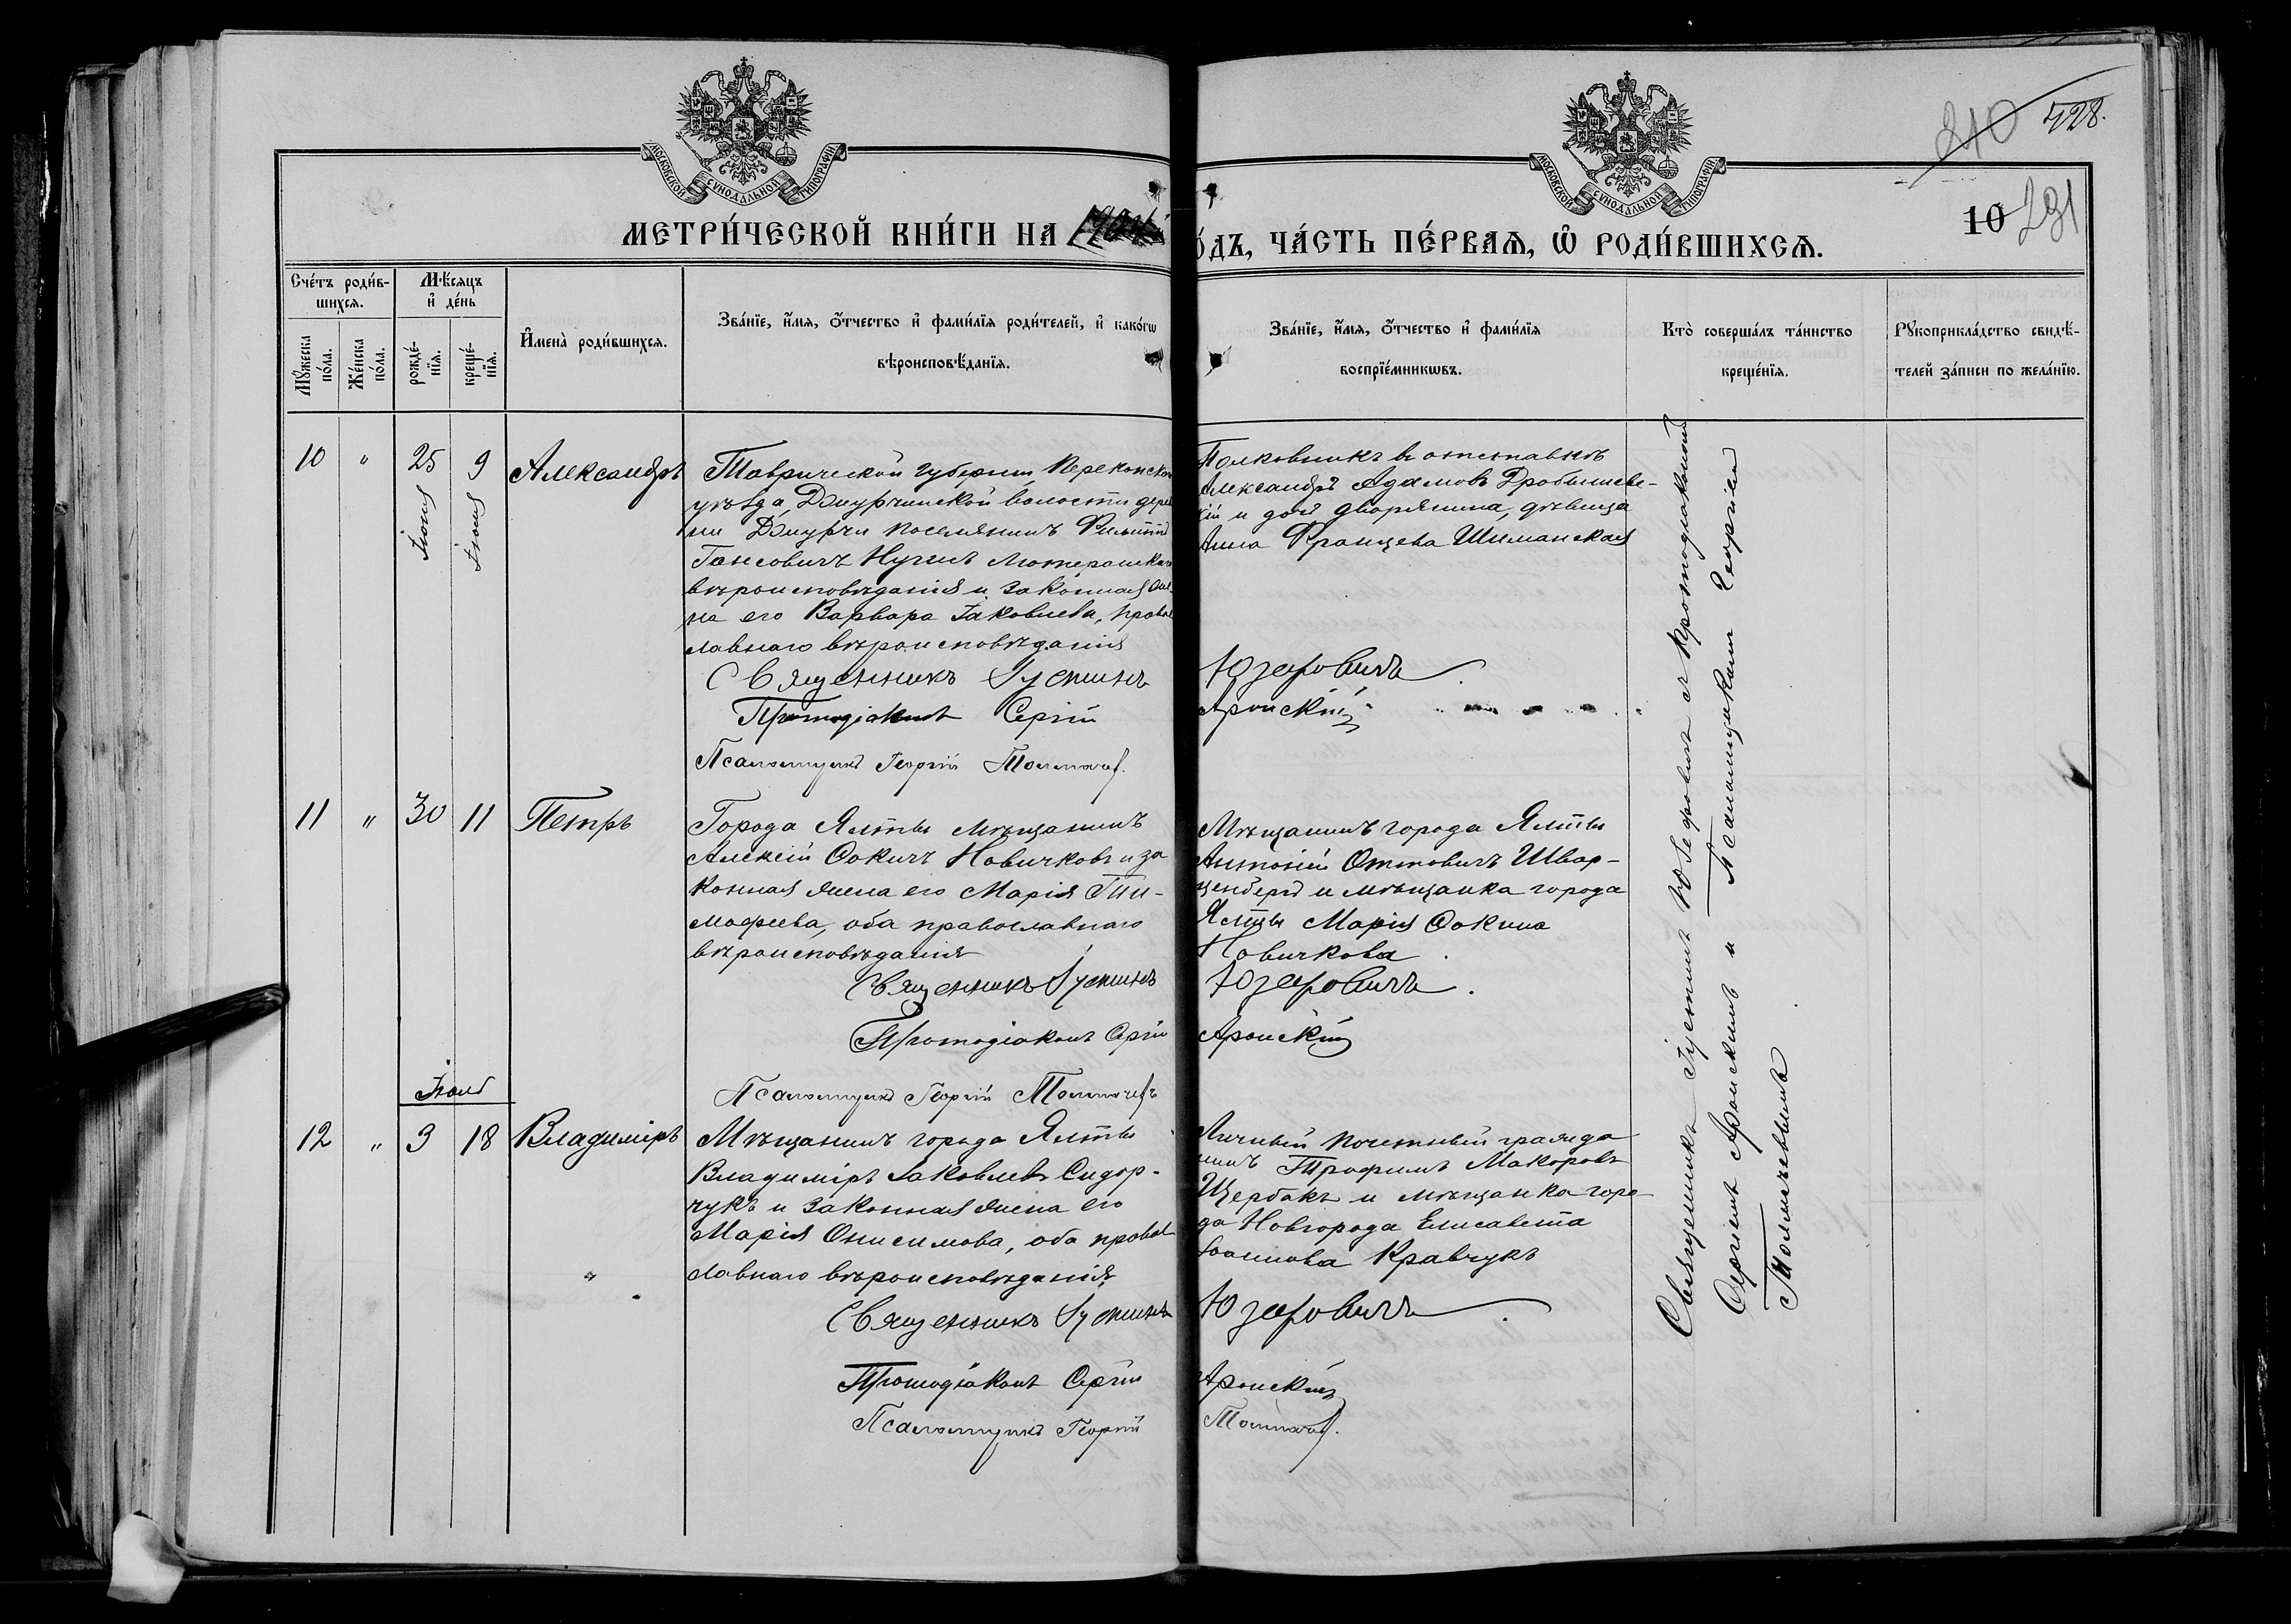 МОСКОВСКОЙ СѴНОДАЛЬНОЙ ТИПОГРАФІИ
МОСКОВСКОЙ СѴНОДАЛЬНОЙ ТИПОГРАФІИ
210 428.
10 291
МЕТРИ́ЧЕСКОЙ КНИ́ГИ НА
О́ДЪ, ЧА́СТЬ ПЕ́РВАѦ, Ѡ҆ РОДИ́ВШИХСѦ.
Сче́тъ роди́в-
шихсѧ.
Мꙋ́жеска по́ла.
Же́нска по́ла.
Мѣ́сѧцъ
и҆ де́нь
рожде́-
нїѧ.
креще́-
нїѧ.
И҆мена̀ роди́вшихсѧ.
Зва́нїе, и҆́мѧ, ѻ҆́тчество и҆ фами́лїѧ роди́телей, и҆ како́гѡ
вѣроисповѣ́данїѧ.
Зва́нїе, и҆́мѧ, ѻ҆́тчество и҆ фами́лїѧ
воспрїе́мникѡвъ.
Кто̀ соверша́лъ та́инство
креще́нїѧ.
Рꙋкоприкла́дство свидѣ́-
телей за́писи по жела́нїю.
10 " 25 9 Александръ
Іюня Іюля
Таврической губерніи, Перекопска
уѣзда, Джурчинской волости дере
ни Джурчи поселянинъ Филиппъ
Гансовичъ Нугисъ лютеранска
вѣроисповѣданія и законная
на его Варвара Іаковлева, право
лавнаго вѣроисповѣданія
Священникъ Іустинъ
Протодіаконъ Сергій
Псаломщикъ Георгій Толмачев.
Полковникъ въ отставкѣ
Александръ Адамовъ Дробышевс-
кій и дочь дворянина, дѣвица
Анна Францева Шиманская
Юзефовичъ.
Аронскій
11 " 30 11 Петръ
Города Ялты мѣщанинъ
Алексій Фокичъ Новичковъ и за
конная жена его Марія Ти-
мофеева, оба православнаго
вѣроисповѣданія
Священникъ Іустинъ
Протодіаконъ Сергій
Псаломщикъ Георгій Толмачевъ
Мѣщанинъ города Ялты
Антоній Оттовичъ Швар-
ценбергъ и мѣщанка города
Ялты Марія Фокина
Новичкова.
Юзефовичъ.
Аронскій
Іюль
12 " 3 18 Владиміръ
Мѣщанинъ города Ялты
Владиміръ Іаковлевъ Сидор-
чукъ и законная жена его
Марія Онисимова, оба правос
лавнаго вѣроисповѣданія
Священникъ Іустинъ
Протодіаконъ Сергій
Псаломщикъ Георгій
Личный почетный гражда
нинъ Трофимъ Макаровъ
Щербакъ и мѣщанка горо-
да Новгорода Елисавета
Іоаннова Кравчукъ
Юзефовичъ.
Аронскій
Толмачев.
Священникъ Іустинъ Юзефовичъ съ протодіакономъ
Сергіемъ Аронскимъ и Псаломщикомъ Георгіем
Толмачевымъ